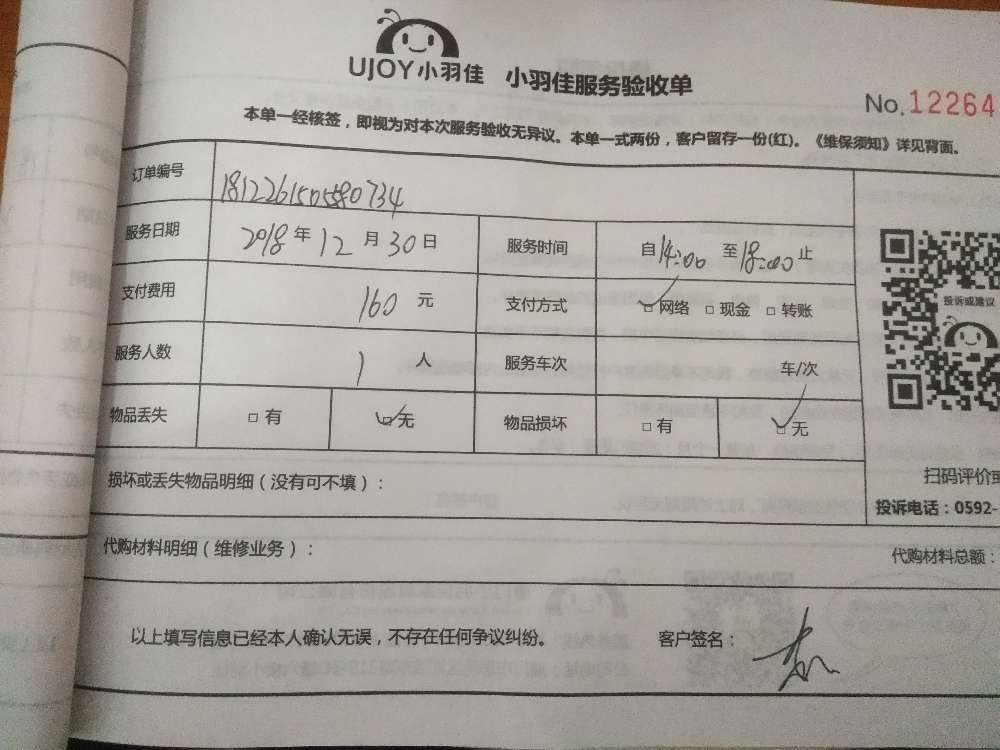 UJOY小羽佳 小羽佳服务验收单
No.12264
本单一经核签，即视为对本次服务验收无异议。本单一式两份，客户留存一份(红)。《维保须知》详见背面。
订单编号
服务日期 2018 年 12 月 30 日 服务时间 自14:00 至18:00止
支付费用 160 元 支付方式 ☑网络 □现金 □转账
投诉或建议
服务人数 1 人 服务车次 车/次
物品丢失 □有 ☑无 物品损坏 □有 ☑无
损坏或丢失物品明细（没有可不填）：
扫码评价或
投诉电话：0592-
代购材料明细（维修业务）：
代购材料总额：
以上填写信息已经本人确认无误，不存在任何争议纠纷。 客户签名：